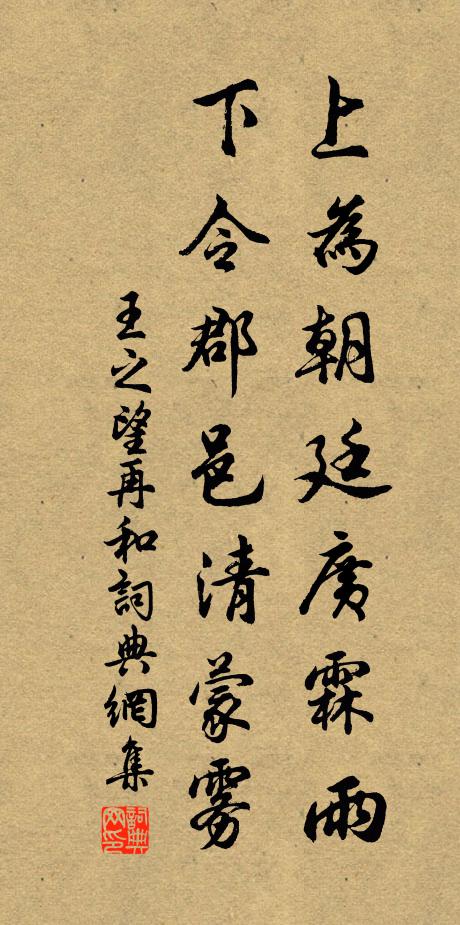 上為朝廷廣霖雨
下令郡邑清蒙霧
王之望再和詞典網集
詞典網印